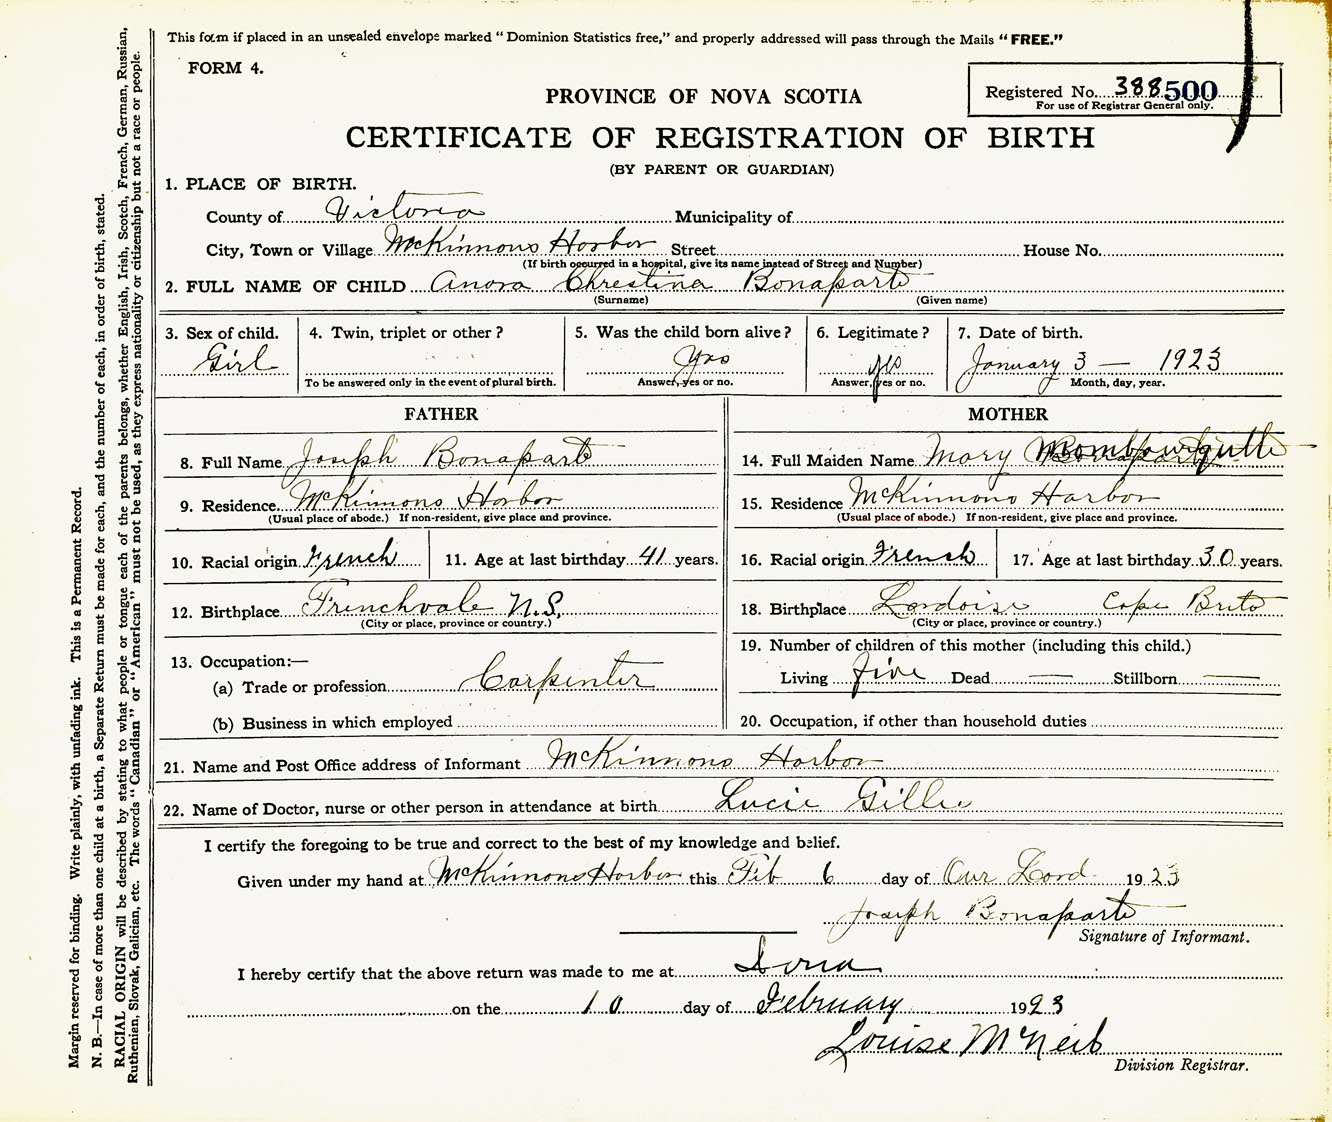 This form if placed in an unsealed envelope marked "Dominion Statistics free," and properly addressed will pass through the Mails "FREE."
FORM 4.
Registered No. 388500
For use of Registrar General only.
PROVINCE OF NOVA SCOTIA
CERTIFICATE OF REGISTRATION OF BIRTH
(BY PARENT OR GUARDIAN)
1. PLACE OF BIRTH.
County of Victoria Municipality of
City, Town or Village McKinnons Harbor Street House No.
(If birth occurred in a hospital, give its name instead of Street and Number)
2. FULL NAME OF CHILD Anora Chrestina Bonaparte
(Surname) (Given name)
3. Sex of child. 4. Twin, triplet or other? 5. Was the child born alive? 6. Legitimate? 7. Date of birth.
Girl Yes yes January 3 — 1923
To be answered only in the event of plural birth. Answer, yes or no. Answer, yes or no. Month, day, year.
FATHER MOTHER
8. Full Name Joseph Bonapart 14. Full Maiden Name Mary
9. Residence McKinnons Harbor 15. Residence McKinnons Harbor
(Usual place of abode.) If non-resident, give place and province. (Usual place of abode.) If non-resident, give place and province.
10. Racial origin French 11. Age at last birthday 41 years. 16. Racial origin French 17. Age at last birthday 30 years.
12. Birthplace Frenchvale N.S. 18. Birthplace Lardoise Cape Brito
(City or place, province or country.) (City or place, province or country.)
19. Number of children of this mother (including this child.)
13. Occupation:—
(a) Trade or profession Carpenter Living five Dead — Stillborn —
(b) Business in which employed 20. Occupation, if other than household duties
21. Name and Post Office address of Informant McKinnons Harbor
22. Name of Doctor, nurse or other person in attendance at birth Lucie Gillis
I certify the foregoing to be true and correct to the best of my knowledge and belief.
Given under my hand at McKinnons Harbor this Feb 6 day of Our Lord 1923
Joseph Bonaparte
Signature of Informant.
I hereby certify that the above return was made to me at Iona
on the 10 day of February 1923
Louise McNeil
Division Registrar.
Margin reserved for binding. Write plainly, with unfading ink. This is a Permanent Record.
N. B.—In case of more than one child at a birth, a Separate Return must be made for each, and the number of each, in order of birth, stated.
RACIAL ORIGIN will be described by stating to what people or tongue each of the parents belongs, whether English, Irish, Scotch, French, German, Russian,
Ruthenian, Slovak, Galician, etc. The words "Canadian" or "American" must not be used, as they express nationality or citizenship but not a race or people.